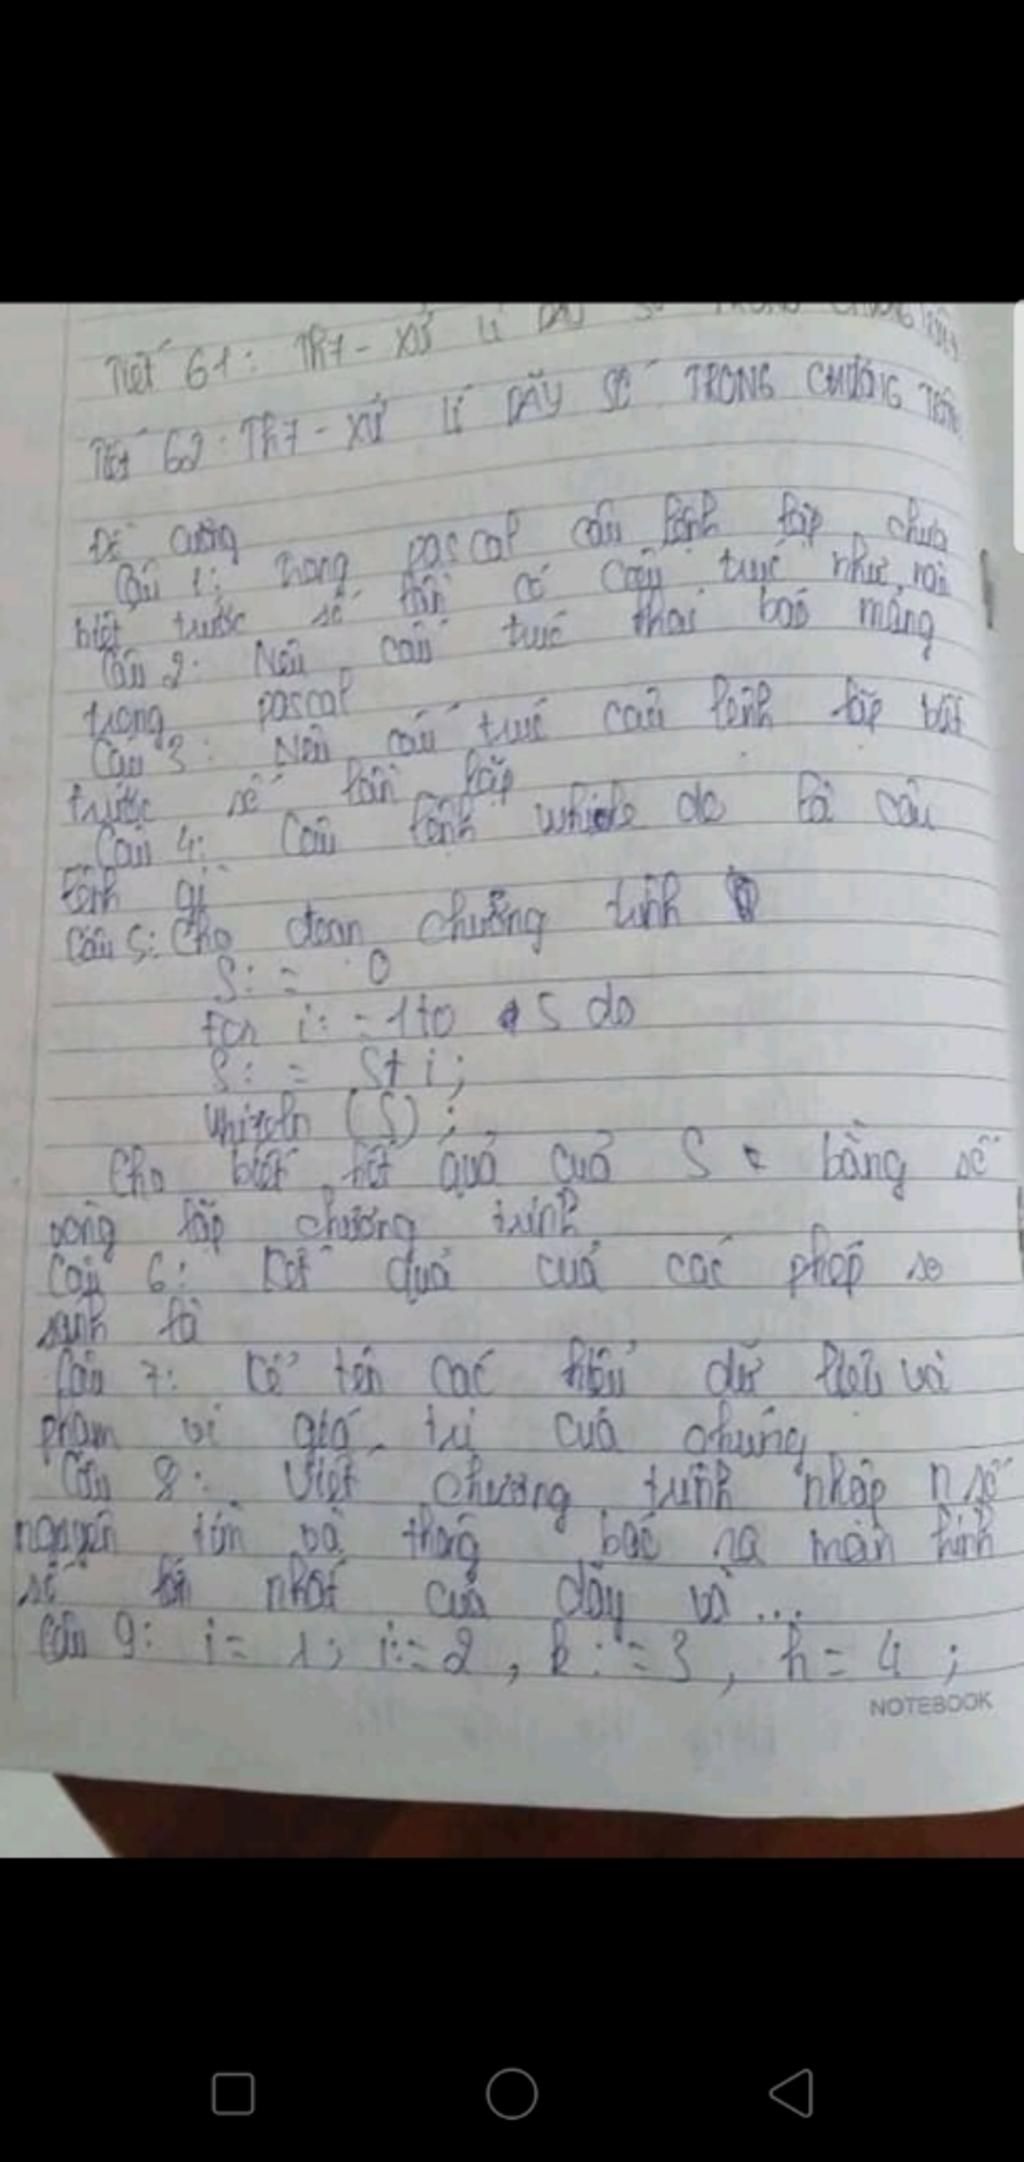 Tiết 61: Th7 - XỬ LÍ DÃY SỐ TRONG
Tiết 62: Th7 - XỬ LÍ DÃY SỐ TRONG CHƯƠNG TRÌNH
Đề cương
Câu 1: Trong pascal câu lệnh lặp chưa
biết trước số lần có cấu trúc như nào
Câu 2: Nêu cấu trúc khai báo mảng
trong pascal
Câu 3: Nêu cấu trúc câu lệnh lặp biết
trước số lần lặp
Câu 4: Câu lệnh while do là câu
lệnh gì
Câu 5: Cho đoạn chương trình
S: = 0
for i: = 1 to 5 do
S: = S + i;
Writeln (S);
Cho biết kết quả của S bằng số
vòng lặp chương trình
Câu 6: Kết quả của các phép so
sánh là
Câu 7: Kể tên các kiểu dữ liệu và
phạm vi giá trị của chúng
Câu 8: Viết chương trình nhập n số
nguyên tìm và thông báo ra màn hình
số lớn nhất của dãy và ...
Câu 9: i = 1; i: = 2, k: = 3, h = 4;
NOTEBOOK